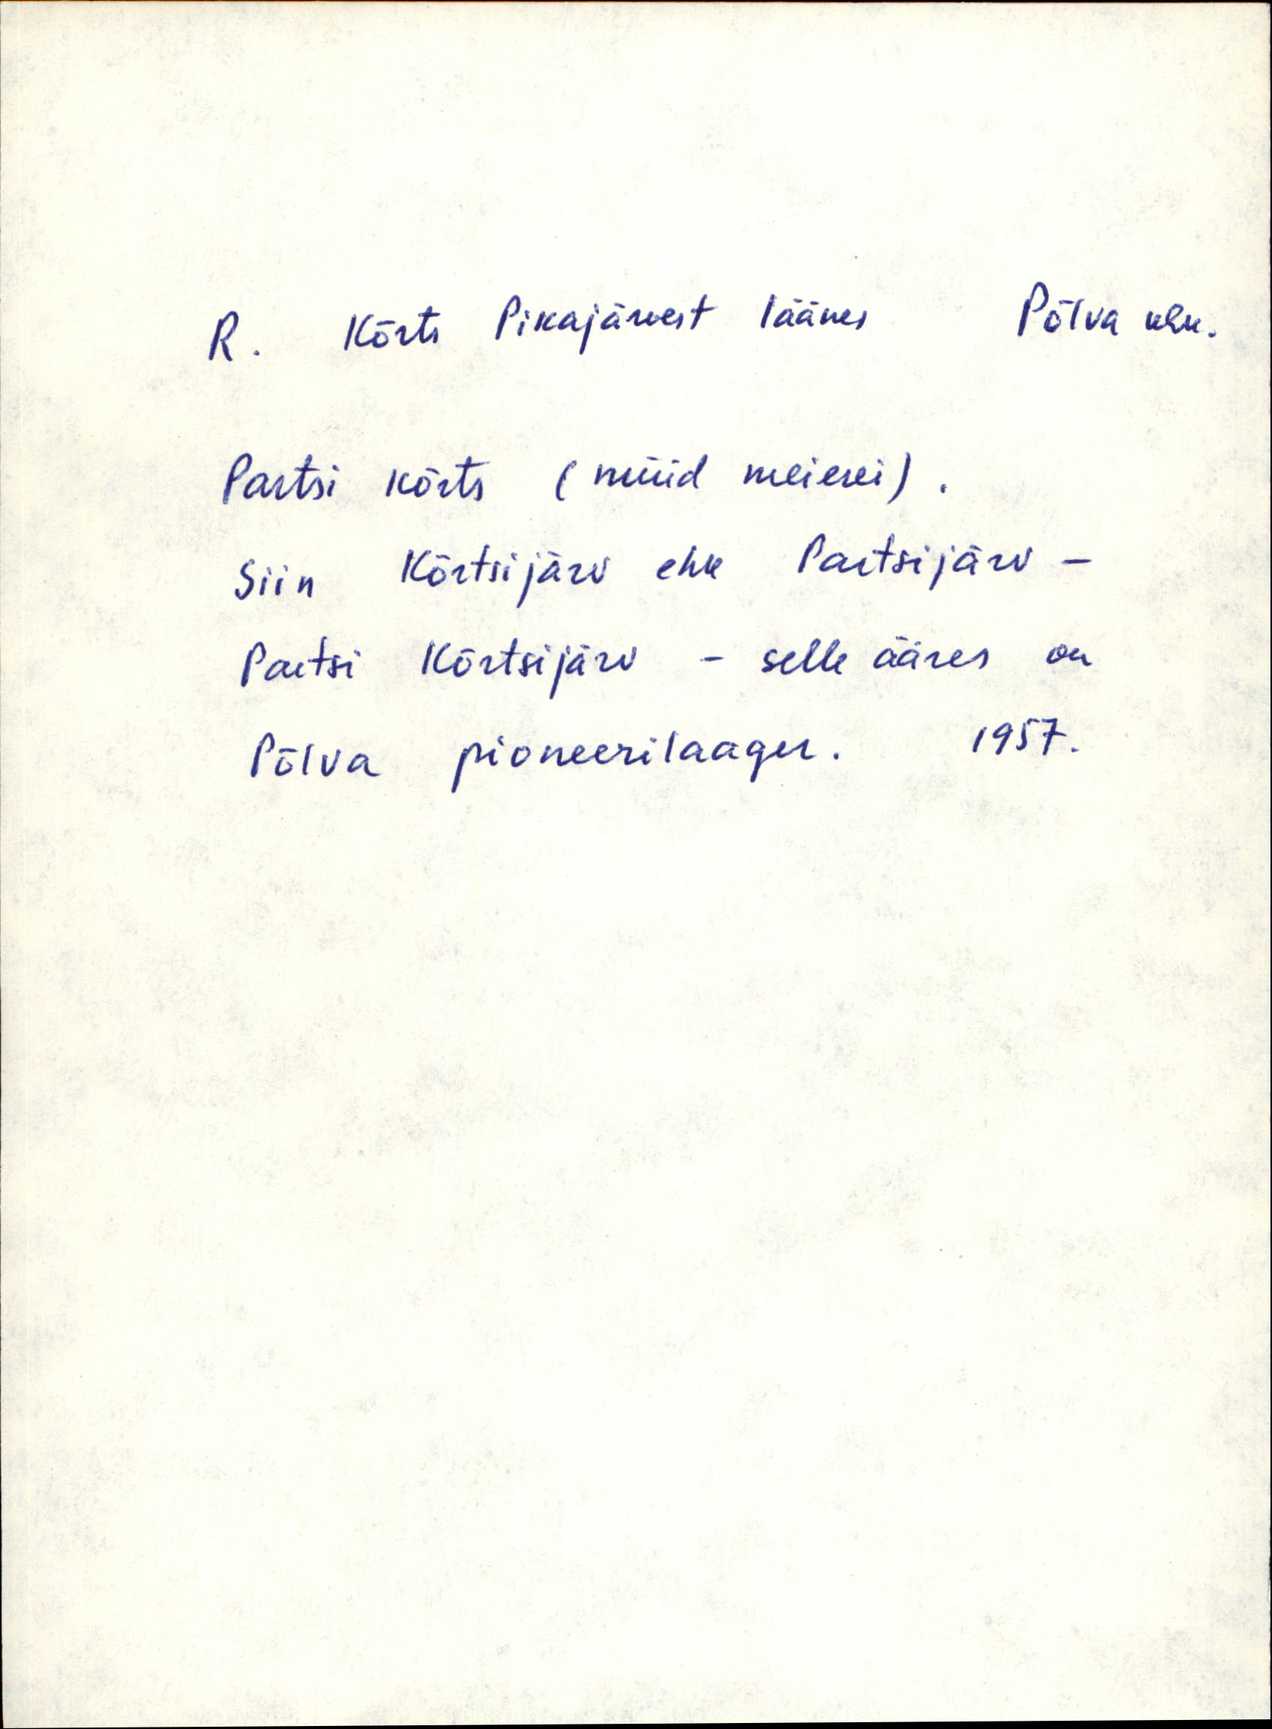 R. Kõrts Pikajärvest läänes Põlva khk.
Partsi kõrts (nüüd meierei).
Siin Kõrtsijärv ehk Partsijärv –
Partsi Kõrtsijärv – selle ääres on
Põlva pioneerilaager. 1957.